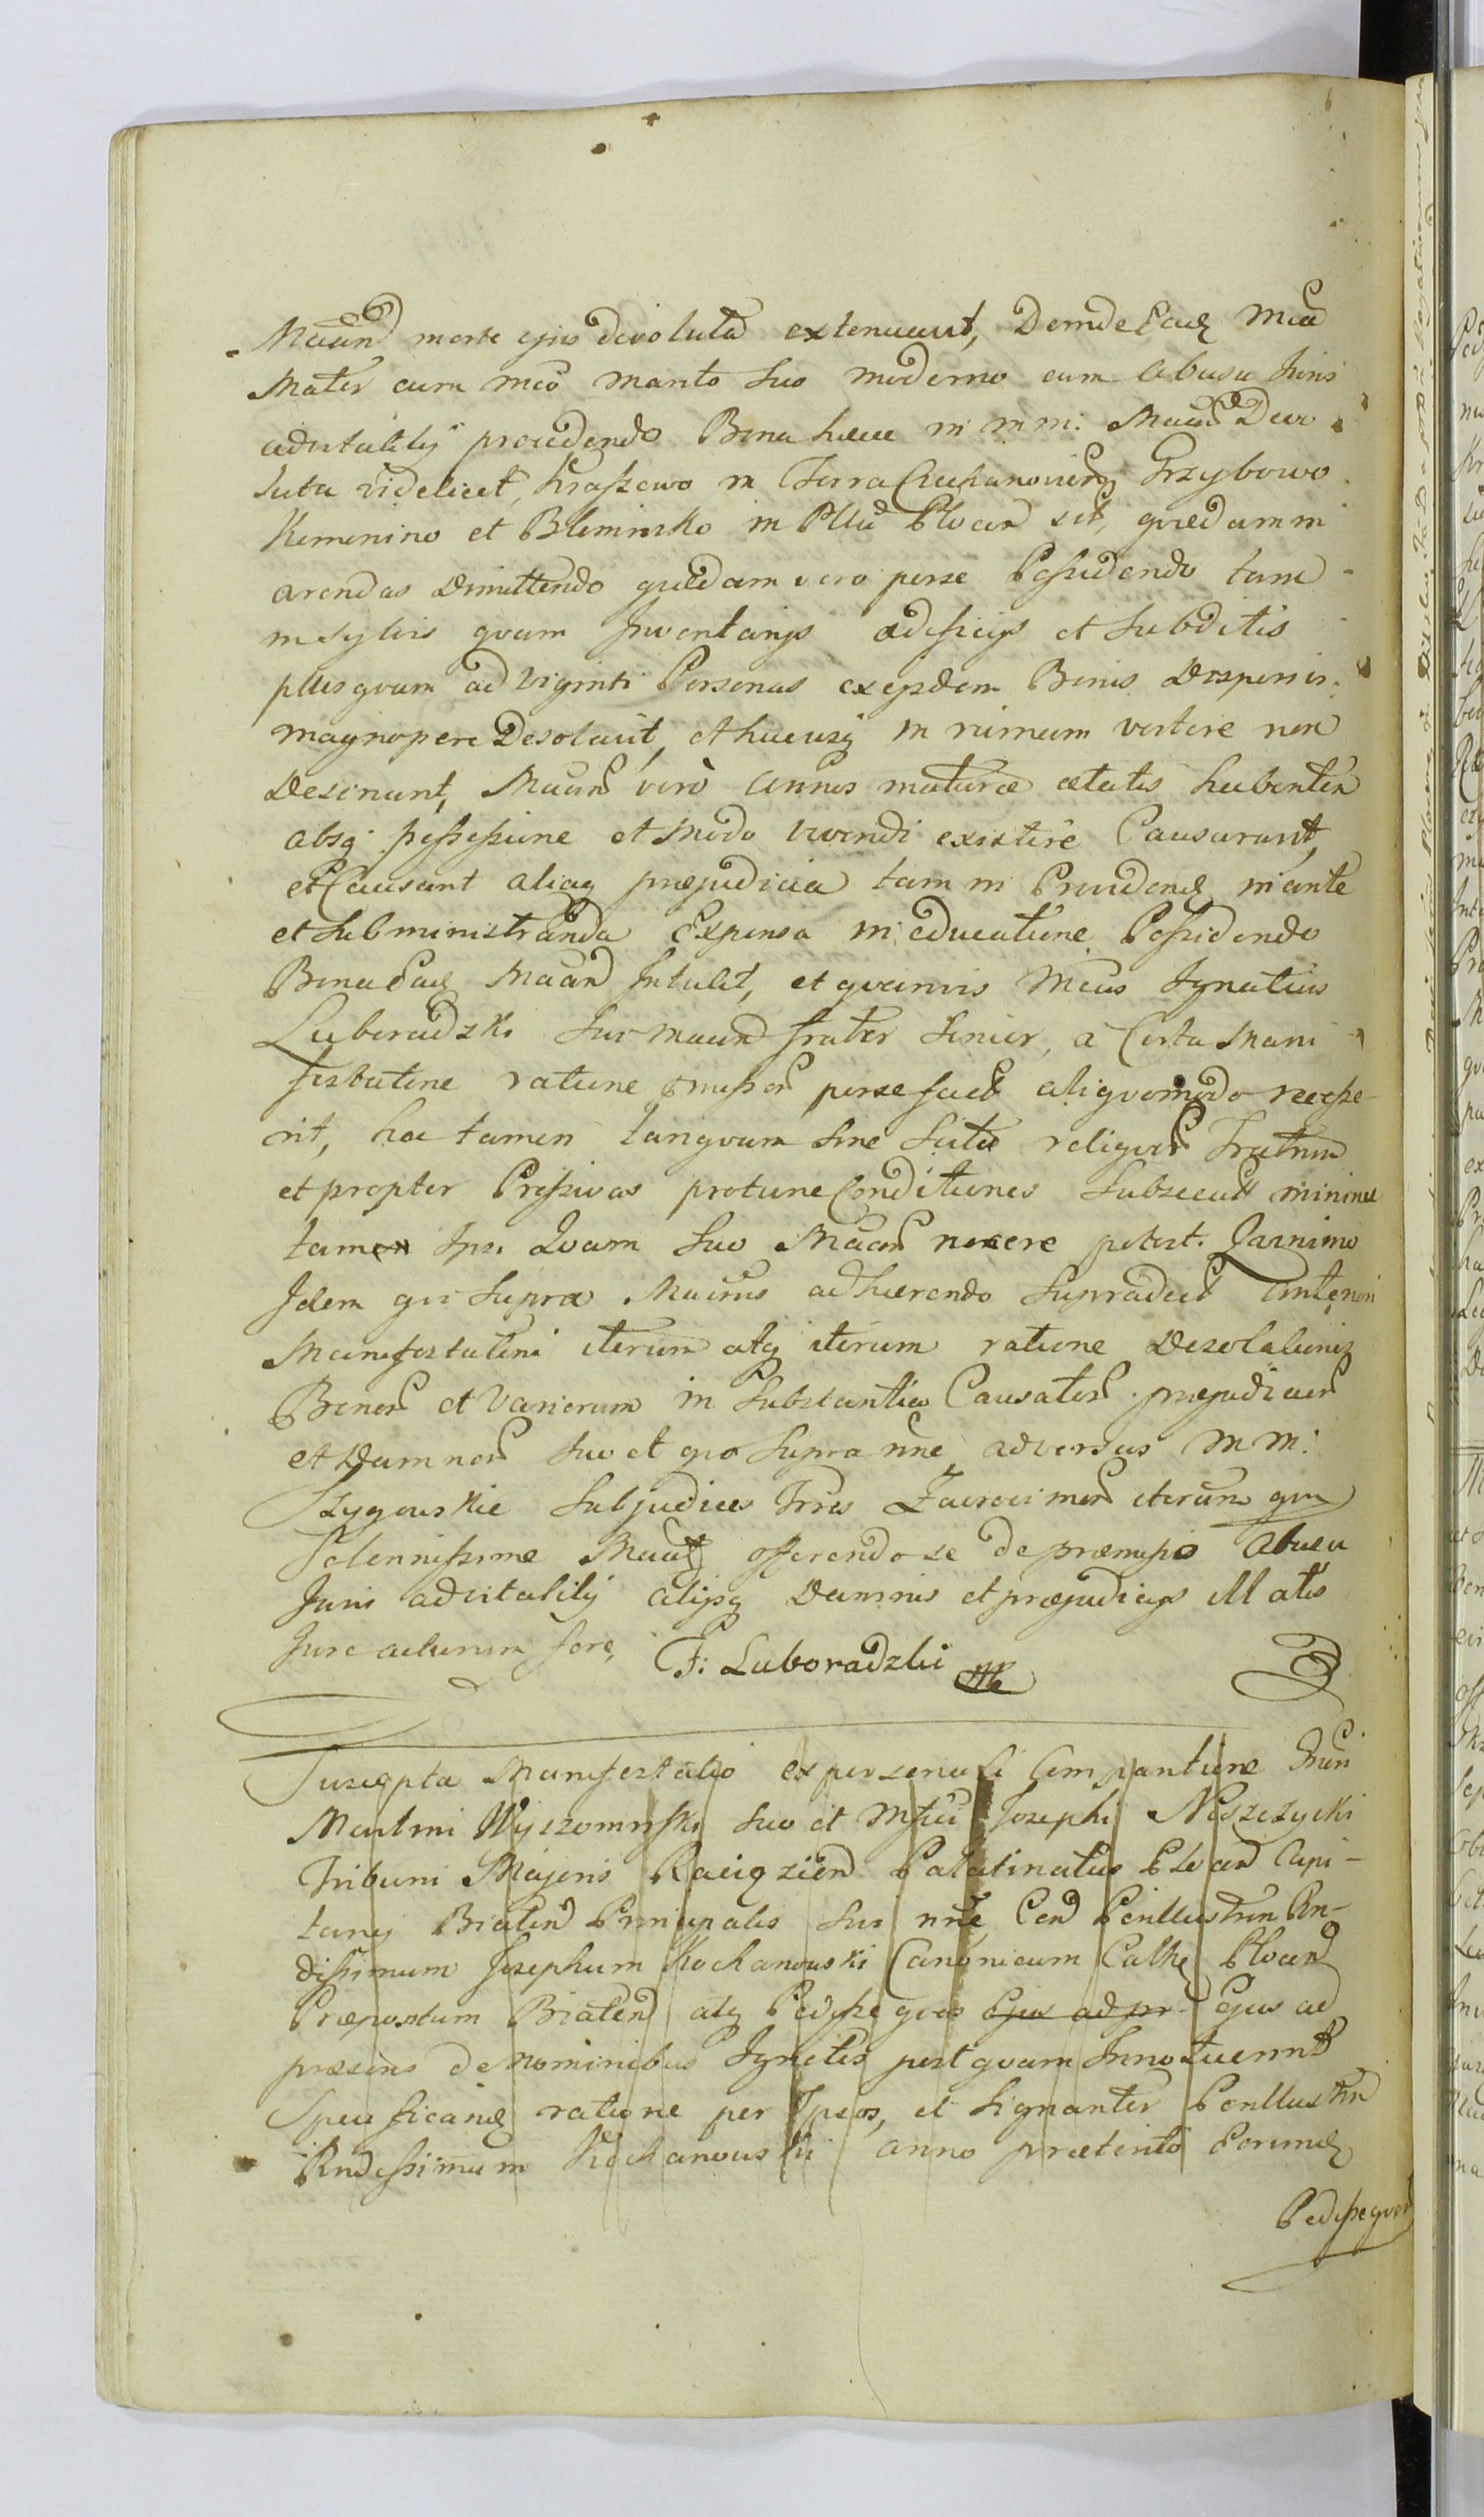 Mañan morte ejus devoluta extenuavit, Deinde Eadẽ Mẽa
Mater cum Mẽo Marito suo moderno cum abusu Juris
advitalitij procedendo Bona hæce in mm: Mañan Devo
luta videlicet, Kraszewo in Terra Ciechanovieñ Grzybowo
Kemenino et Bleminsko in Pllũ Plocen sit, quædam in
arendas Dimittendo quædam vero per se Possidendo tam
in Sylvis quam Inventarijs ædificijs et Subditis
plus quam ad viginti Personas ex ijsdem Bonis Dispersis
magnopere Desolavit, et hucusq in ruinam vertere non
Desinunt, Mañan verò annos maturæ ætatis habenten
absq possessione et Modo vivendi existere Causarunt,
et Causant aliaq præjudicia tam in Providenda in ante
et Subministranda Expensa in educatione Possidendo
Bona Eadẽ Mañan Intulit, et quamvis Mẽus Ignatius
Luboradzki Suo Mañan frater Senior, a Certa Mani
festatione ratione præmissor per se fact aliquomodo recesse-
rit, hoc tamen tanquam sine Scitu reliquor Fratrum
et propter Pressivas protunc Conditiones Subsecutt minime
tamen Ipsi Quam Suo Mañan nocere potest. Quinimo
Idem qui Supra Mañnus adhærendo Supradict anterior
Manifestationi iterum atq iterum ratione Desolationis
Bonor et Variorum in Substantia Causator præjudicior
et Damnor suo et quo Supra nñe adversus MM:
Szygowskie Subjudices Trrs Zacrocimeñ iterum qm
Solennissime Mañt offerendo se de præmissis Abusu
Juris advitalitij alijsq Damnis et præjudicijs Illatis
Jure acturum fore, F: Luboradzki mp
Suscepta Manifestatio ex personali Comparitione Gnñi
Martini Wyszomirski suo et Mfici Josephi Niszczycki
Tribuni Majoris Raciązień Palatinatus Plocen Capi-
tanej Bialeñ Principalis Sui nñe Con Perillustrem Rn-
dissimum Josephum Kochanowski Canonicum Cathẽ Plocen
Præpositum Bialeñ atq Pedissequos Ejus ad pr Ejus ad
præsens de Nominibus Ignotis post quam Innotuerint
Specificanẽ ratione per Ipsos, et Signanter Perillustrem
Rndissimum Kochanowski anno præterito Eorundẽ
Pedissequor